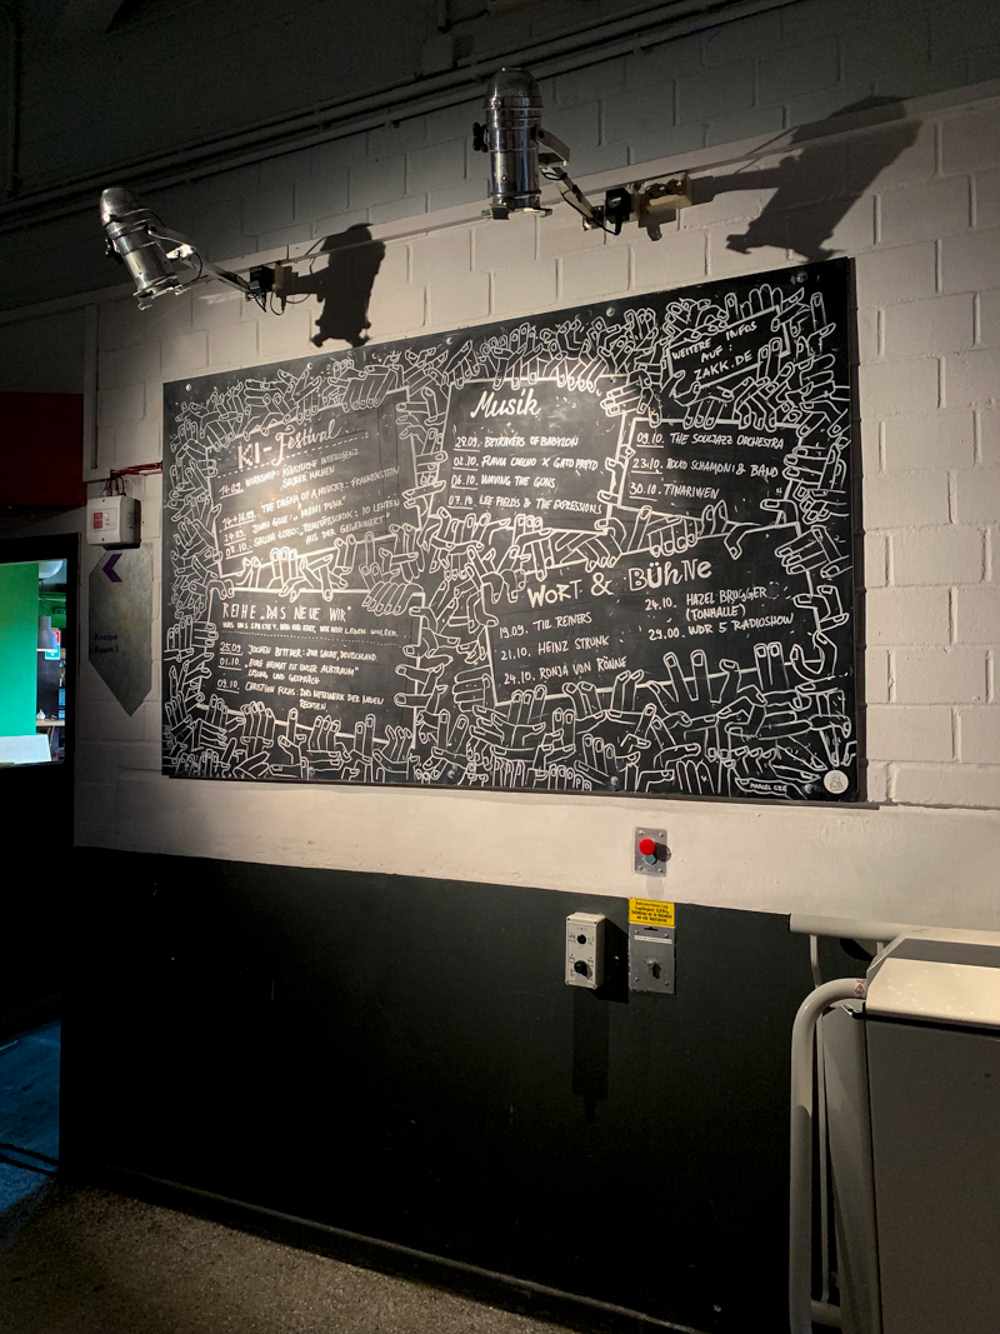 WEITERE INFOS
AUF :
ZAKK.DE
KI-Festival
14.09. WORKSHOP: KÜNSTLICHE INTELLIGENZ
SELBER MACHEN
THE DREAM OF A MONSTER: FRANKENSTEIN
24.09. JOHN GOSE:
SASCHA LOBO: „REALITÄTSSCHOCK: 10 LEHREN
AUS DER GEGENWART"
Musik
29.09. BETRAYERS OF BABYLON
02.10. FLAVIA COELHO X GATO PREYO
06.10. WAVING THE GUNS
07.10. LEE FIELDS & THE EXPRESSIONS
09.10. THE SOULJAZZ ORCHESTRA
23.10. ROCKO SCHAMONI & BAND
30.10. TINARIWEN
REIHE „DAS NEUE WIR"
WAS UNS SPALTET, WAS UNS EINT, WIE WIR LEBEN WOLLEN
25.09. JOCHEN BITTNER: ZUR SACHE, DEUTSCHLAND
01.10. „EURE HEIMAT IST UNSER ALBTRAUM"
LESUNG UND GESPRÄCH
09.10. CHRISTIAN FUCHS: DAS NETZWERK DER NEUEN
RECHTEN
WORT & BÜHNE
19.09. TILL REINERS
21.10. HEINZ STRUNK
24.10. RONJA VON RÖNNE
24.10. HAZEL BRUGGER
(TONHALLE)
29.00. WDR 5 RADIOSHOW
Kneipe
Raum 1